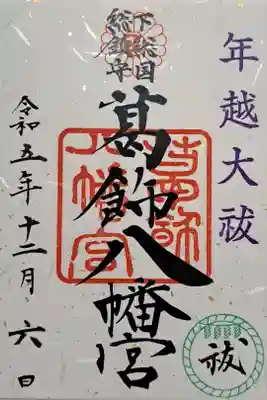 年越大祓
下総国
総鎮守
葛飾八幡宮
令和五年十二月六日
祓